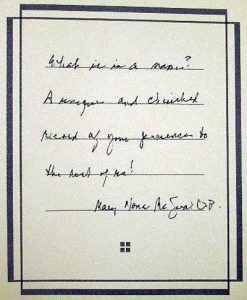 What is in a name?
A unique and cherished
record of your preciousness to
the rest of us!
Mary